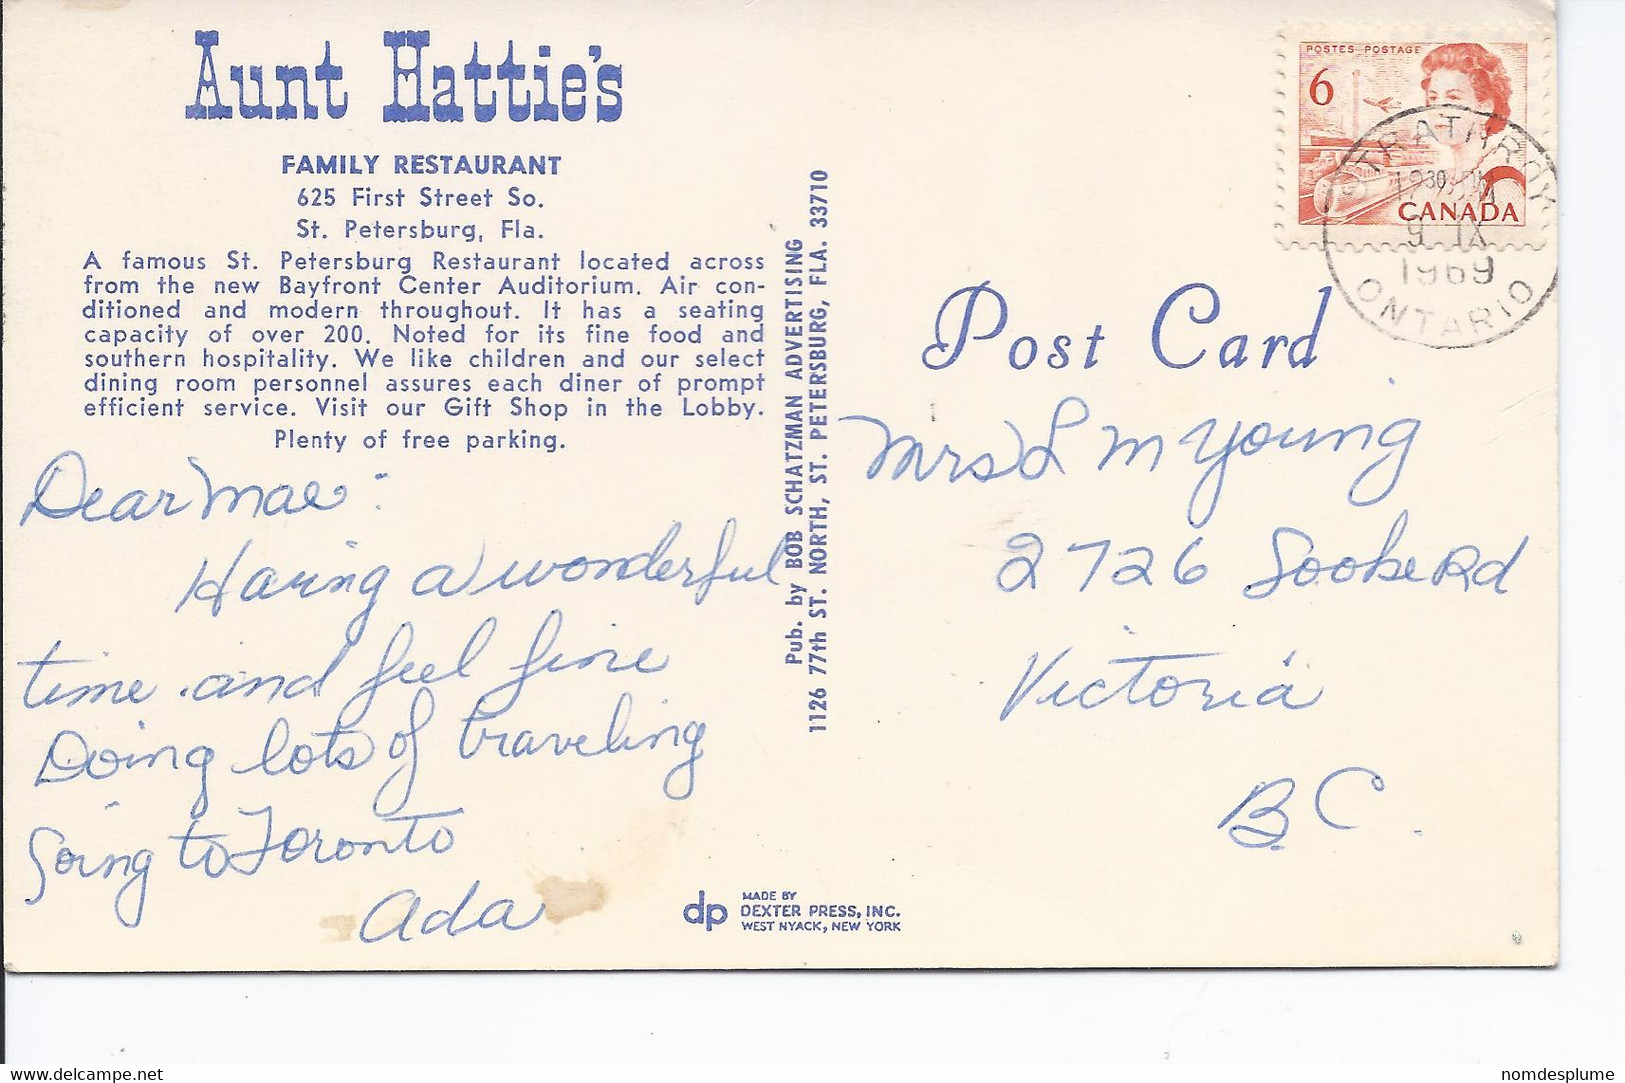 Aunt Hattie's
FAMILY RESTAURANT
625 First Street So.
St. Petersburg, Fla.
A famous St. Petersburg Restaurant located across
from the new Bayfront Center Auditorium. Air con-
ditioned and modern throughout. It has a seating
capacity of over 200. Noted for its fine food and
southern hospitality. We like children and our select
dining room personnel assures each diner of prompt
efficient service. Visit our Gift Shop in the Lobby.
Plenty of free parking.
Dear Mae:
Having a wonderful
time and feel fine
Doing lots of traveling
going to Toronto
Ada
Pub. by BOB SCHATZMAN ADVERTISING
1126 77th ST. NORTH, ST. PETERSBURG, FLA. 33710
dp
MADE BY
DEXTER PRESS, INC.
WEST NYACK, NEW YORK
POSTES POSTAGE
6
CANADA
STRATHROY
9 IX
1969
ONTARIO
Post Card
Mrs L M Young
2726 Sooke Rd
Victoria
B.C.
www.delcampe.net
nomdesplume